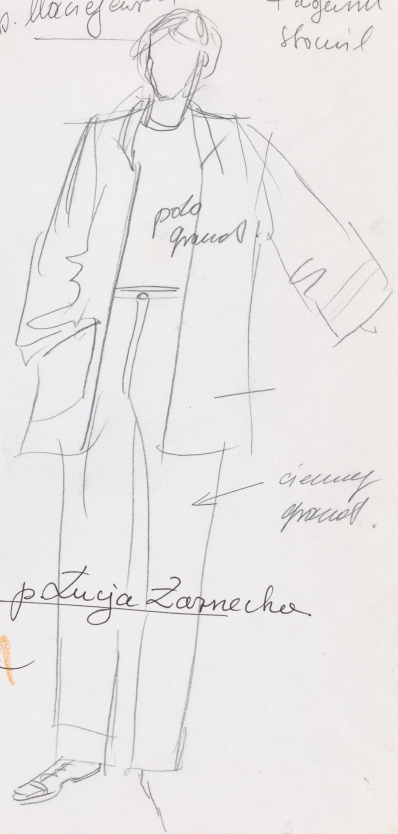 p. Maciejews
+
Stomil
polo
granat.
ciemny
granat.
p Łucja Żarnecka